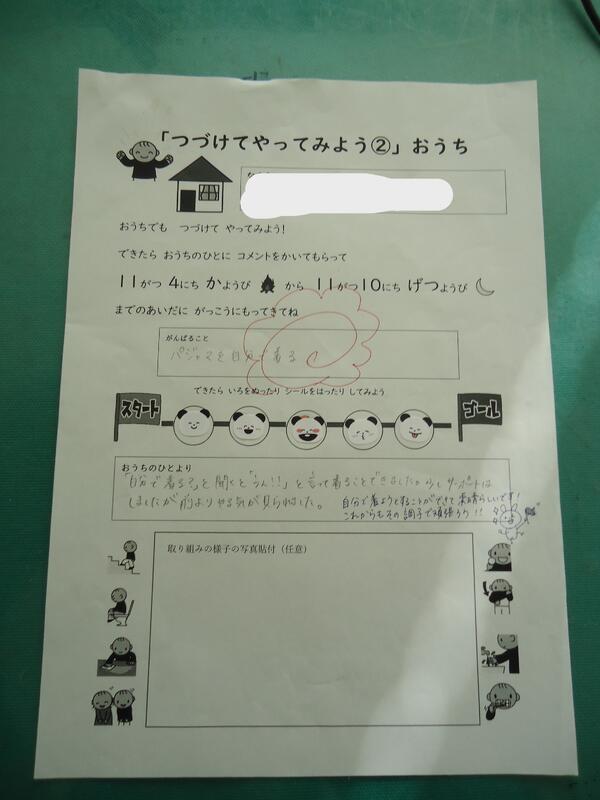 「つづけてやってみよう②」おうち
おうちでも つづけて やってみよう!
できたら おうちのひとに コメントをかいてもらって
11がつ 4にち かようび から 11がつ10にち げつようび
までのあいだに がっこうにもってきてね
がんばること
パジャマを自分で着る
できたら いろをぬったり シールをはったり してみよう
スタート
ゴール
おうちのひとより
「自分で着る?」と聞くと「うん!!」と言って着ることできました。少しサポートは
しましたが前よりやる気が見られました。
自分で着ようとすることができて素晴らしいです!
これからもその調子で頑張ろう!!
取り組みの様子の写真貼付(任意)